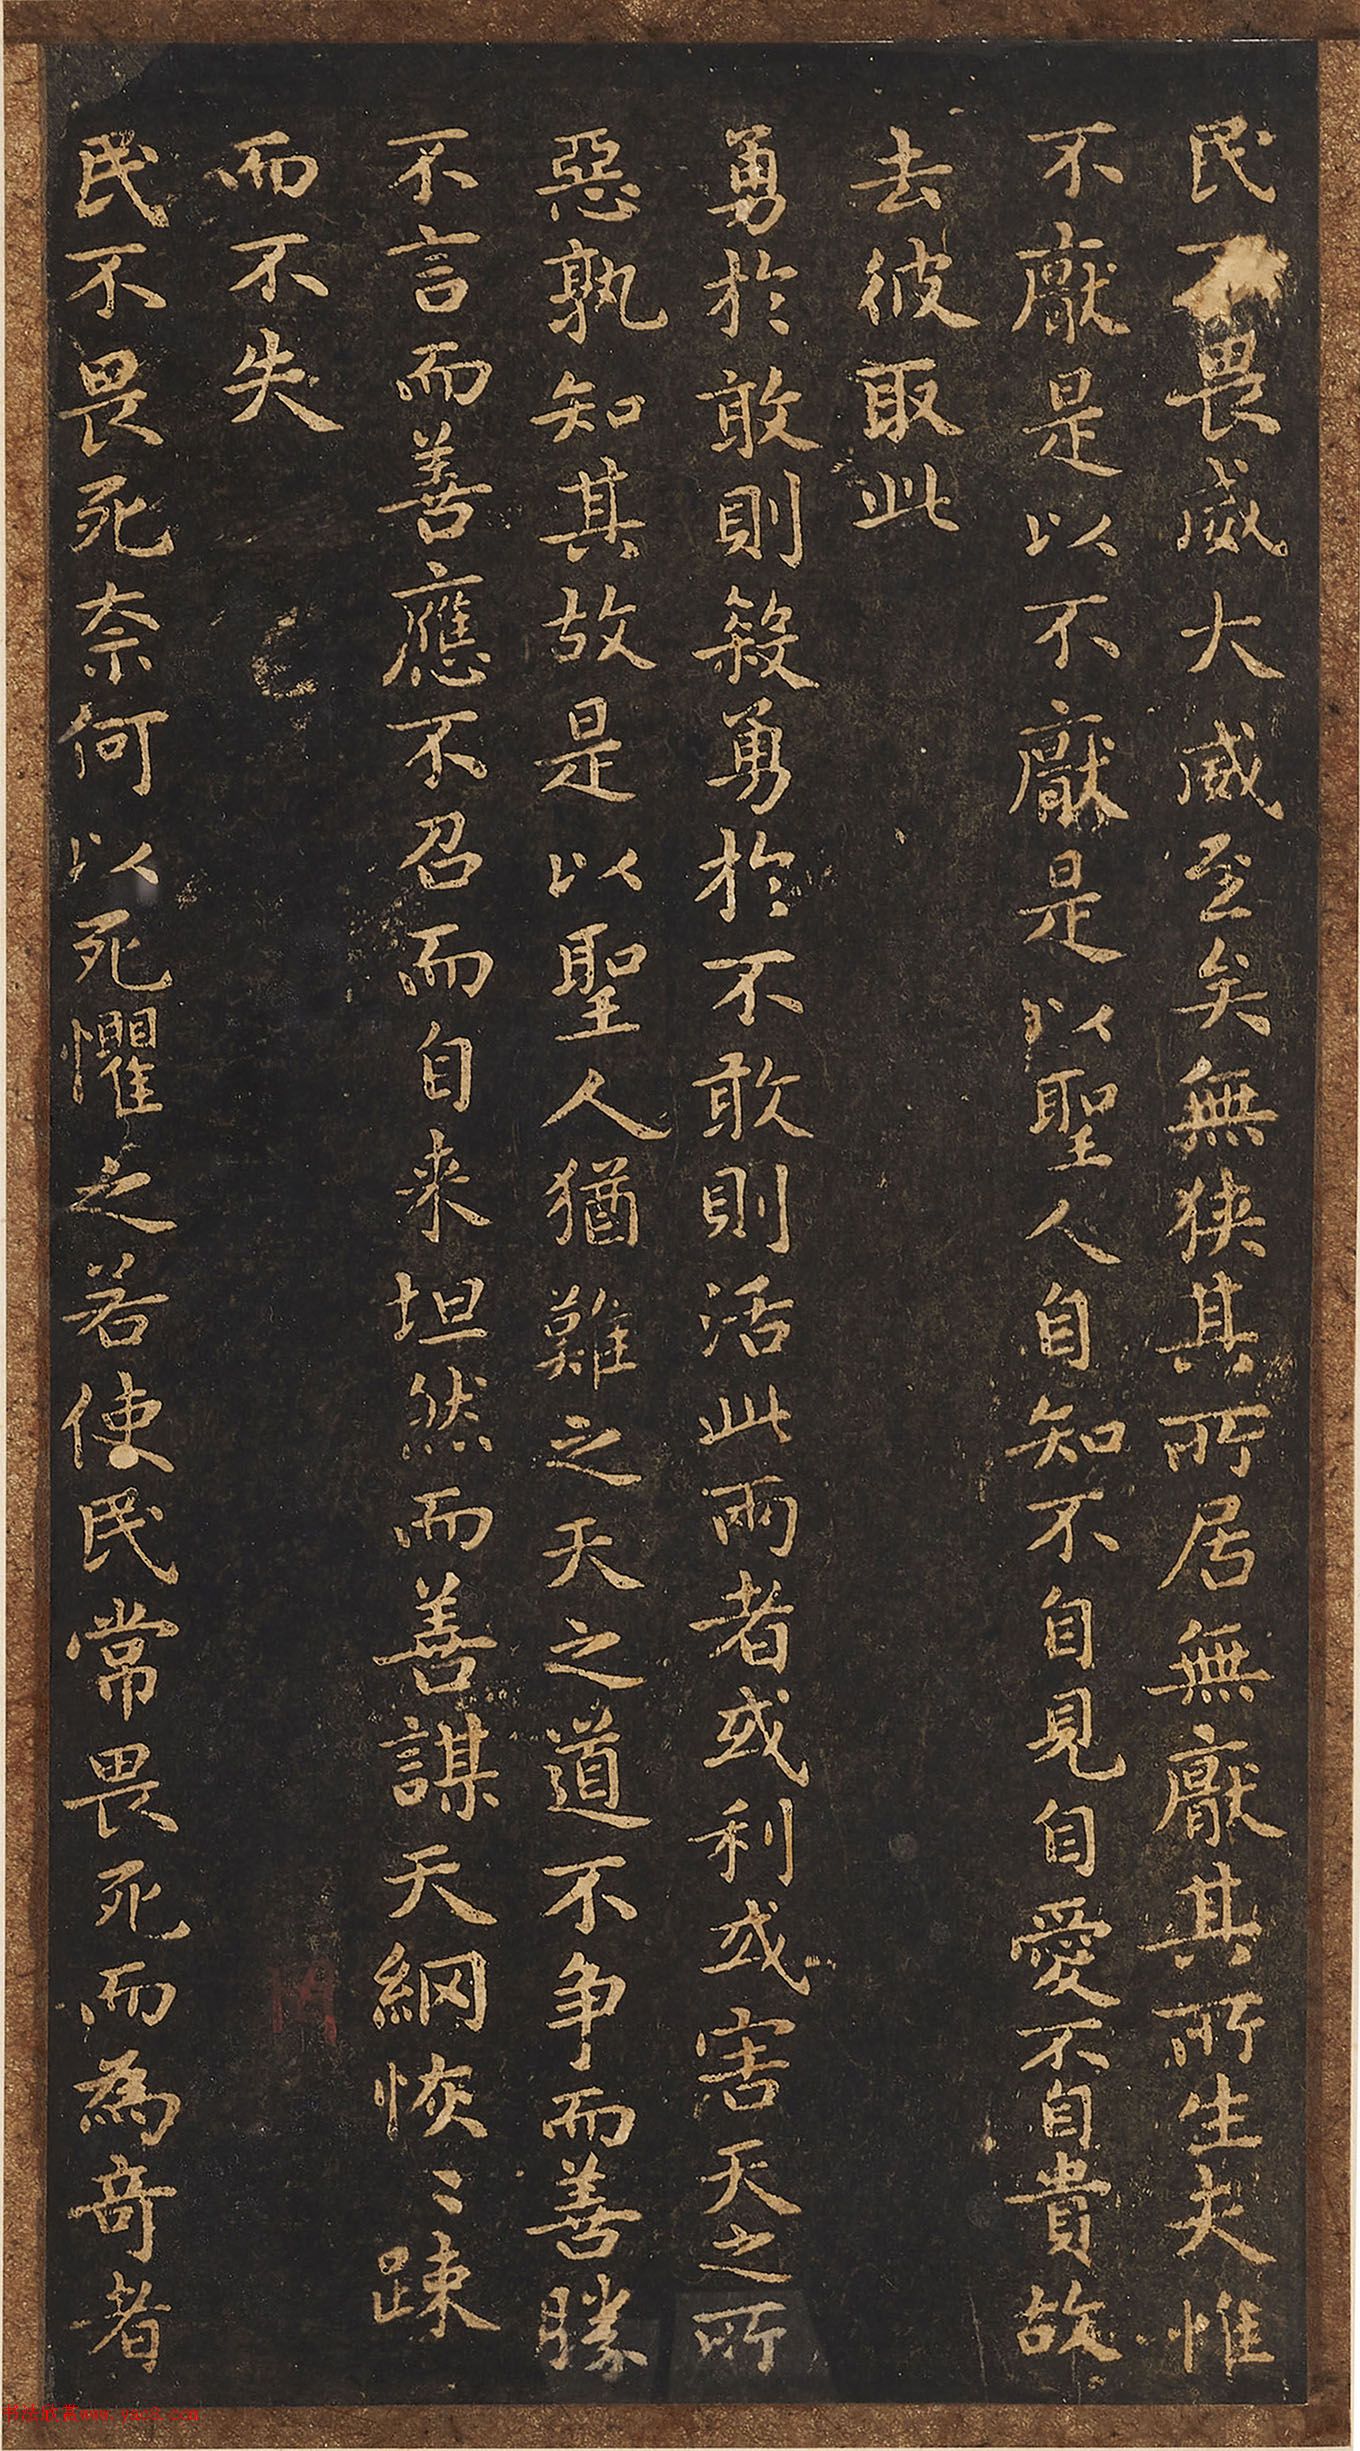 民不畏威大威至矣無狹其所居無厭其所生夫惟
不厭是以不厭是以聖人自知不自見自愛不自貴故
去彼取此
勇於敢則殺勇於不敢則活此兩者或利或害天之所
惡孰知其故是以聖人猶難之天之道不争而善勝
不言而善應不召而自来坦然而善謀天網恢〻踈
而不失
民不畏死奈何以死懼之若使民常畏死而為竒者